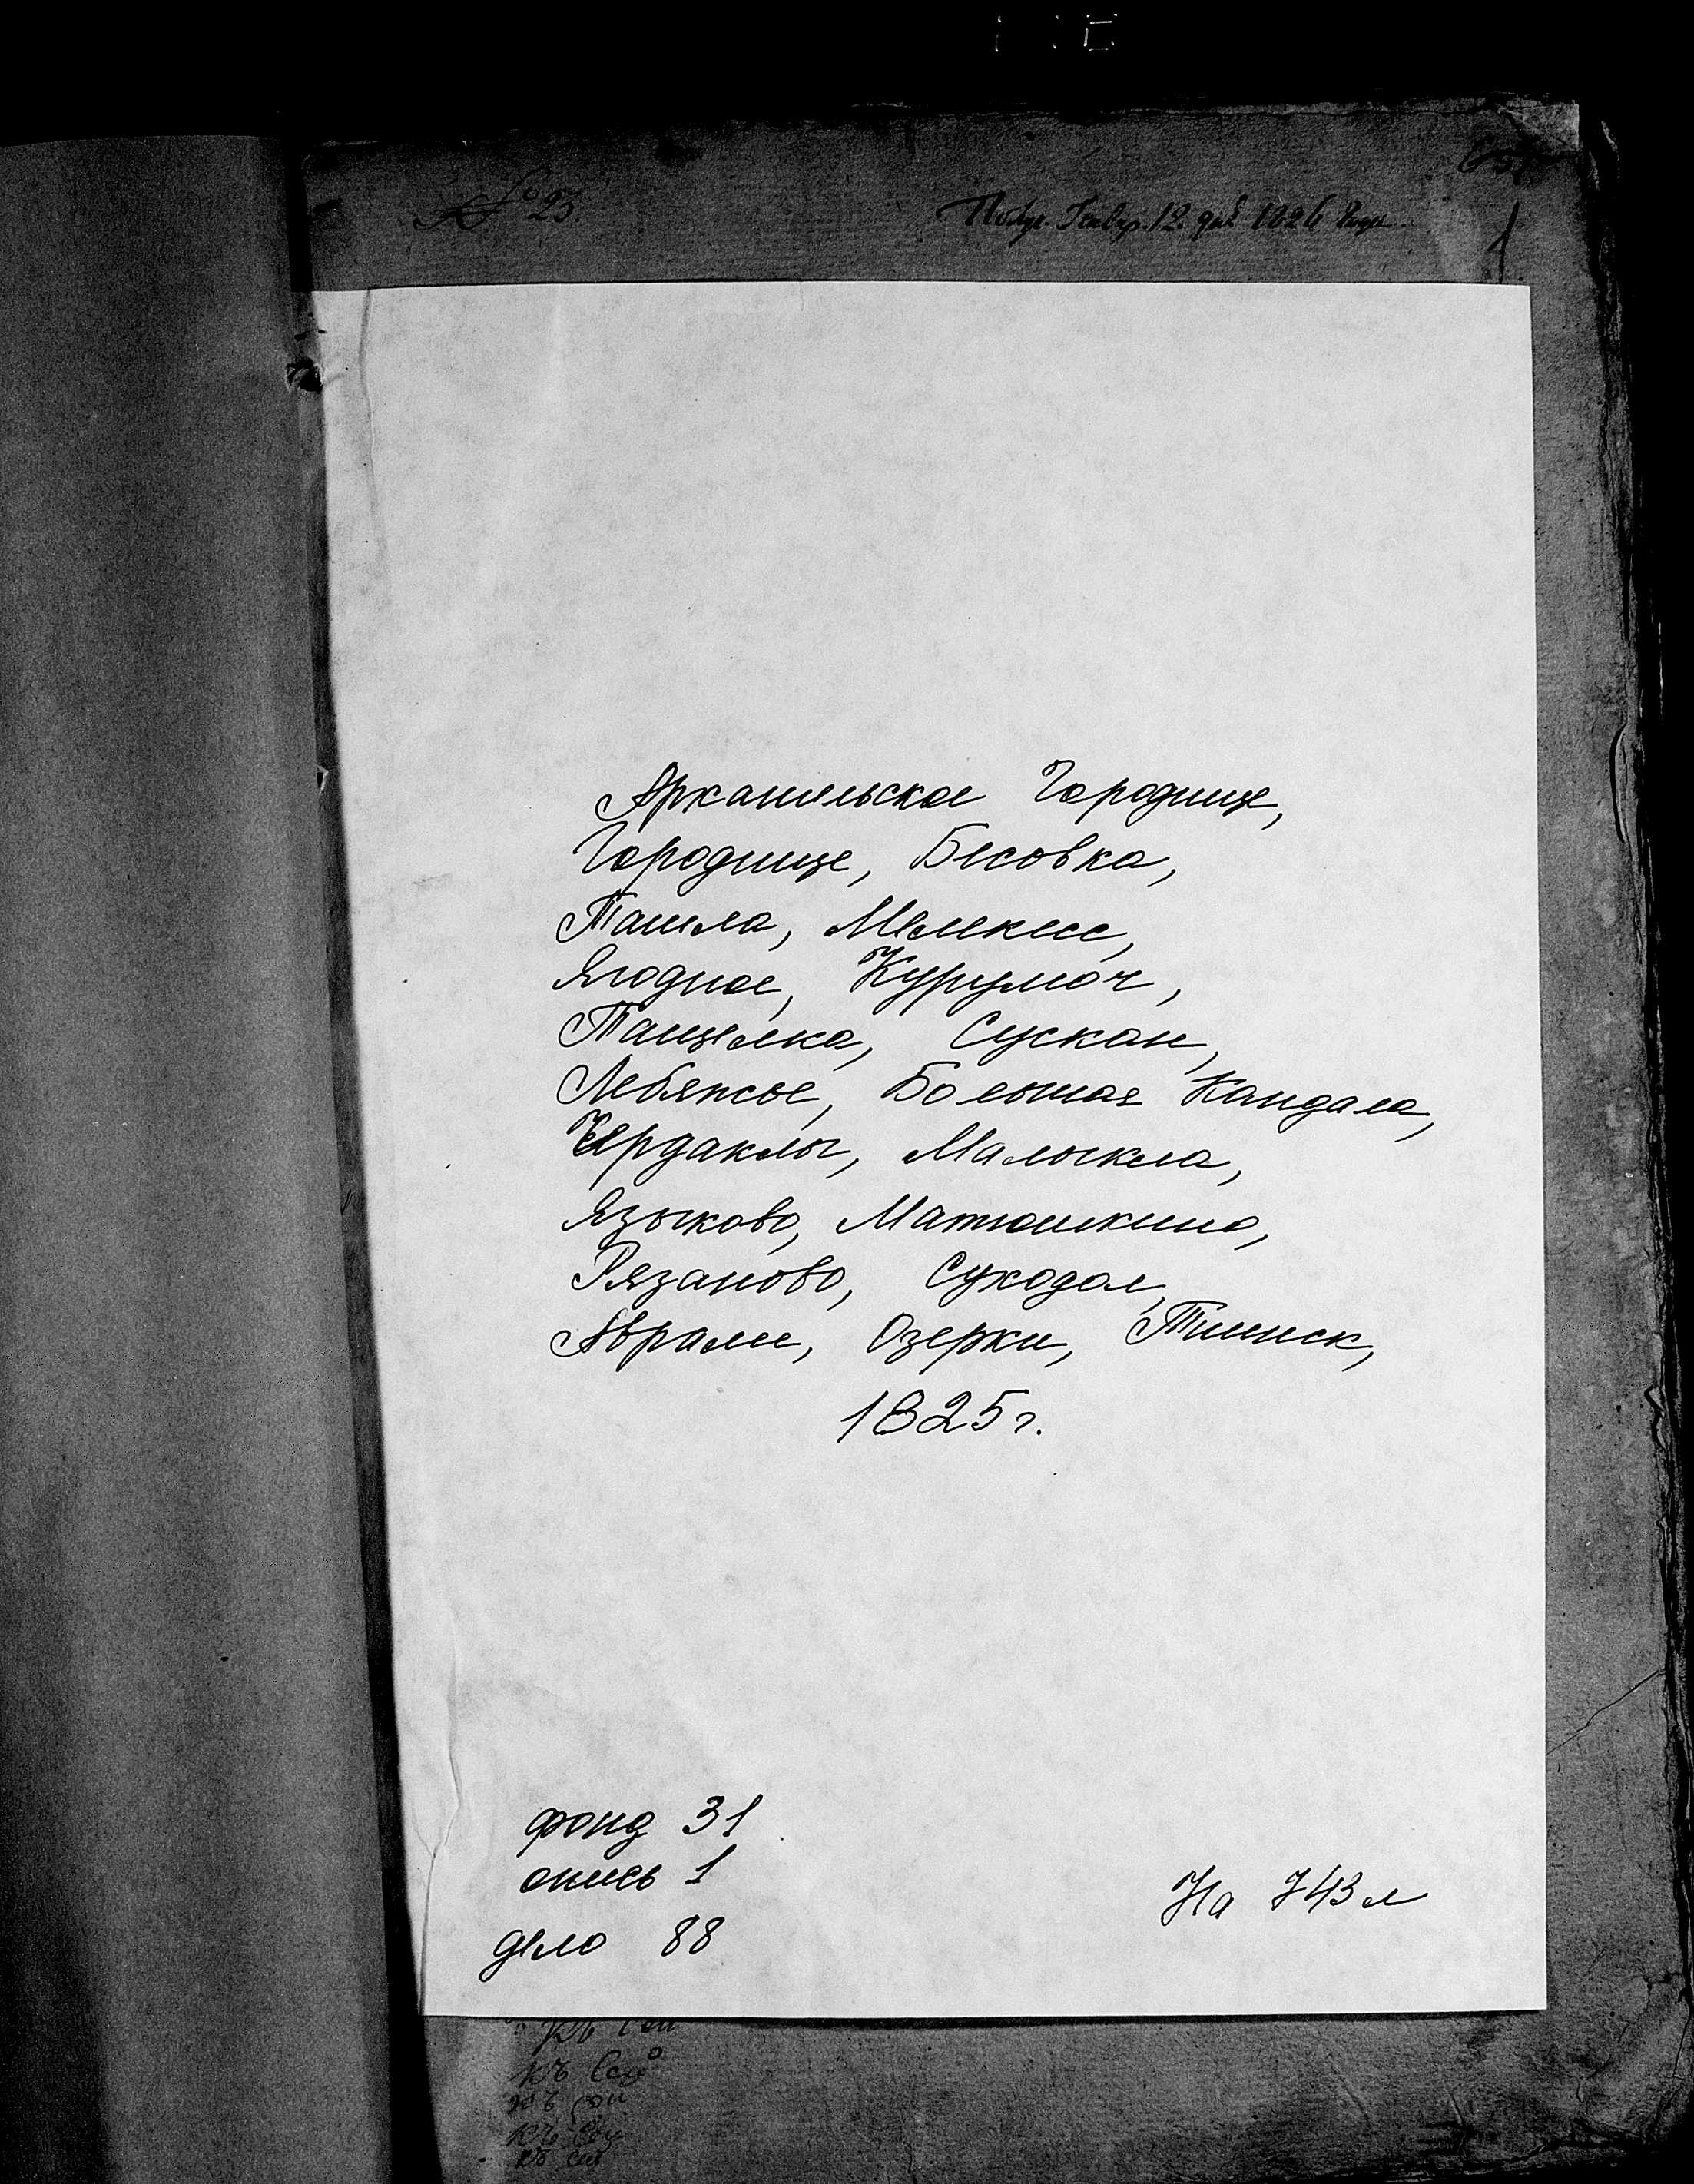 № 23.
Получ. Генвар. 12. дня 1826 года
Архангельское Городище,
Городище, Бесовка,
Ташла, Мелекесс,
Ягодное, Курумоч,
Тащелка, Сускан,
Лебяжье, Большая Кандала,
Чердаклы, Малыкла,
Языково, Матюшкино,
Рязаново, Суходол,
Аврали, Озерки, Тиинск,
1825 г.
фонд 31
опись 1
дело 88
На 743 л
къ сей
къ сей
къ сей
къ сей